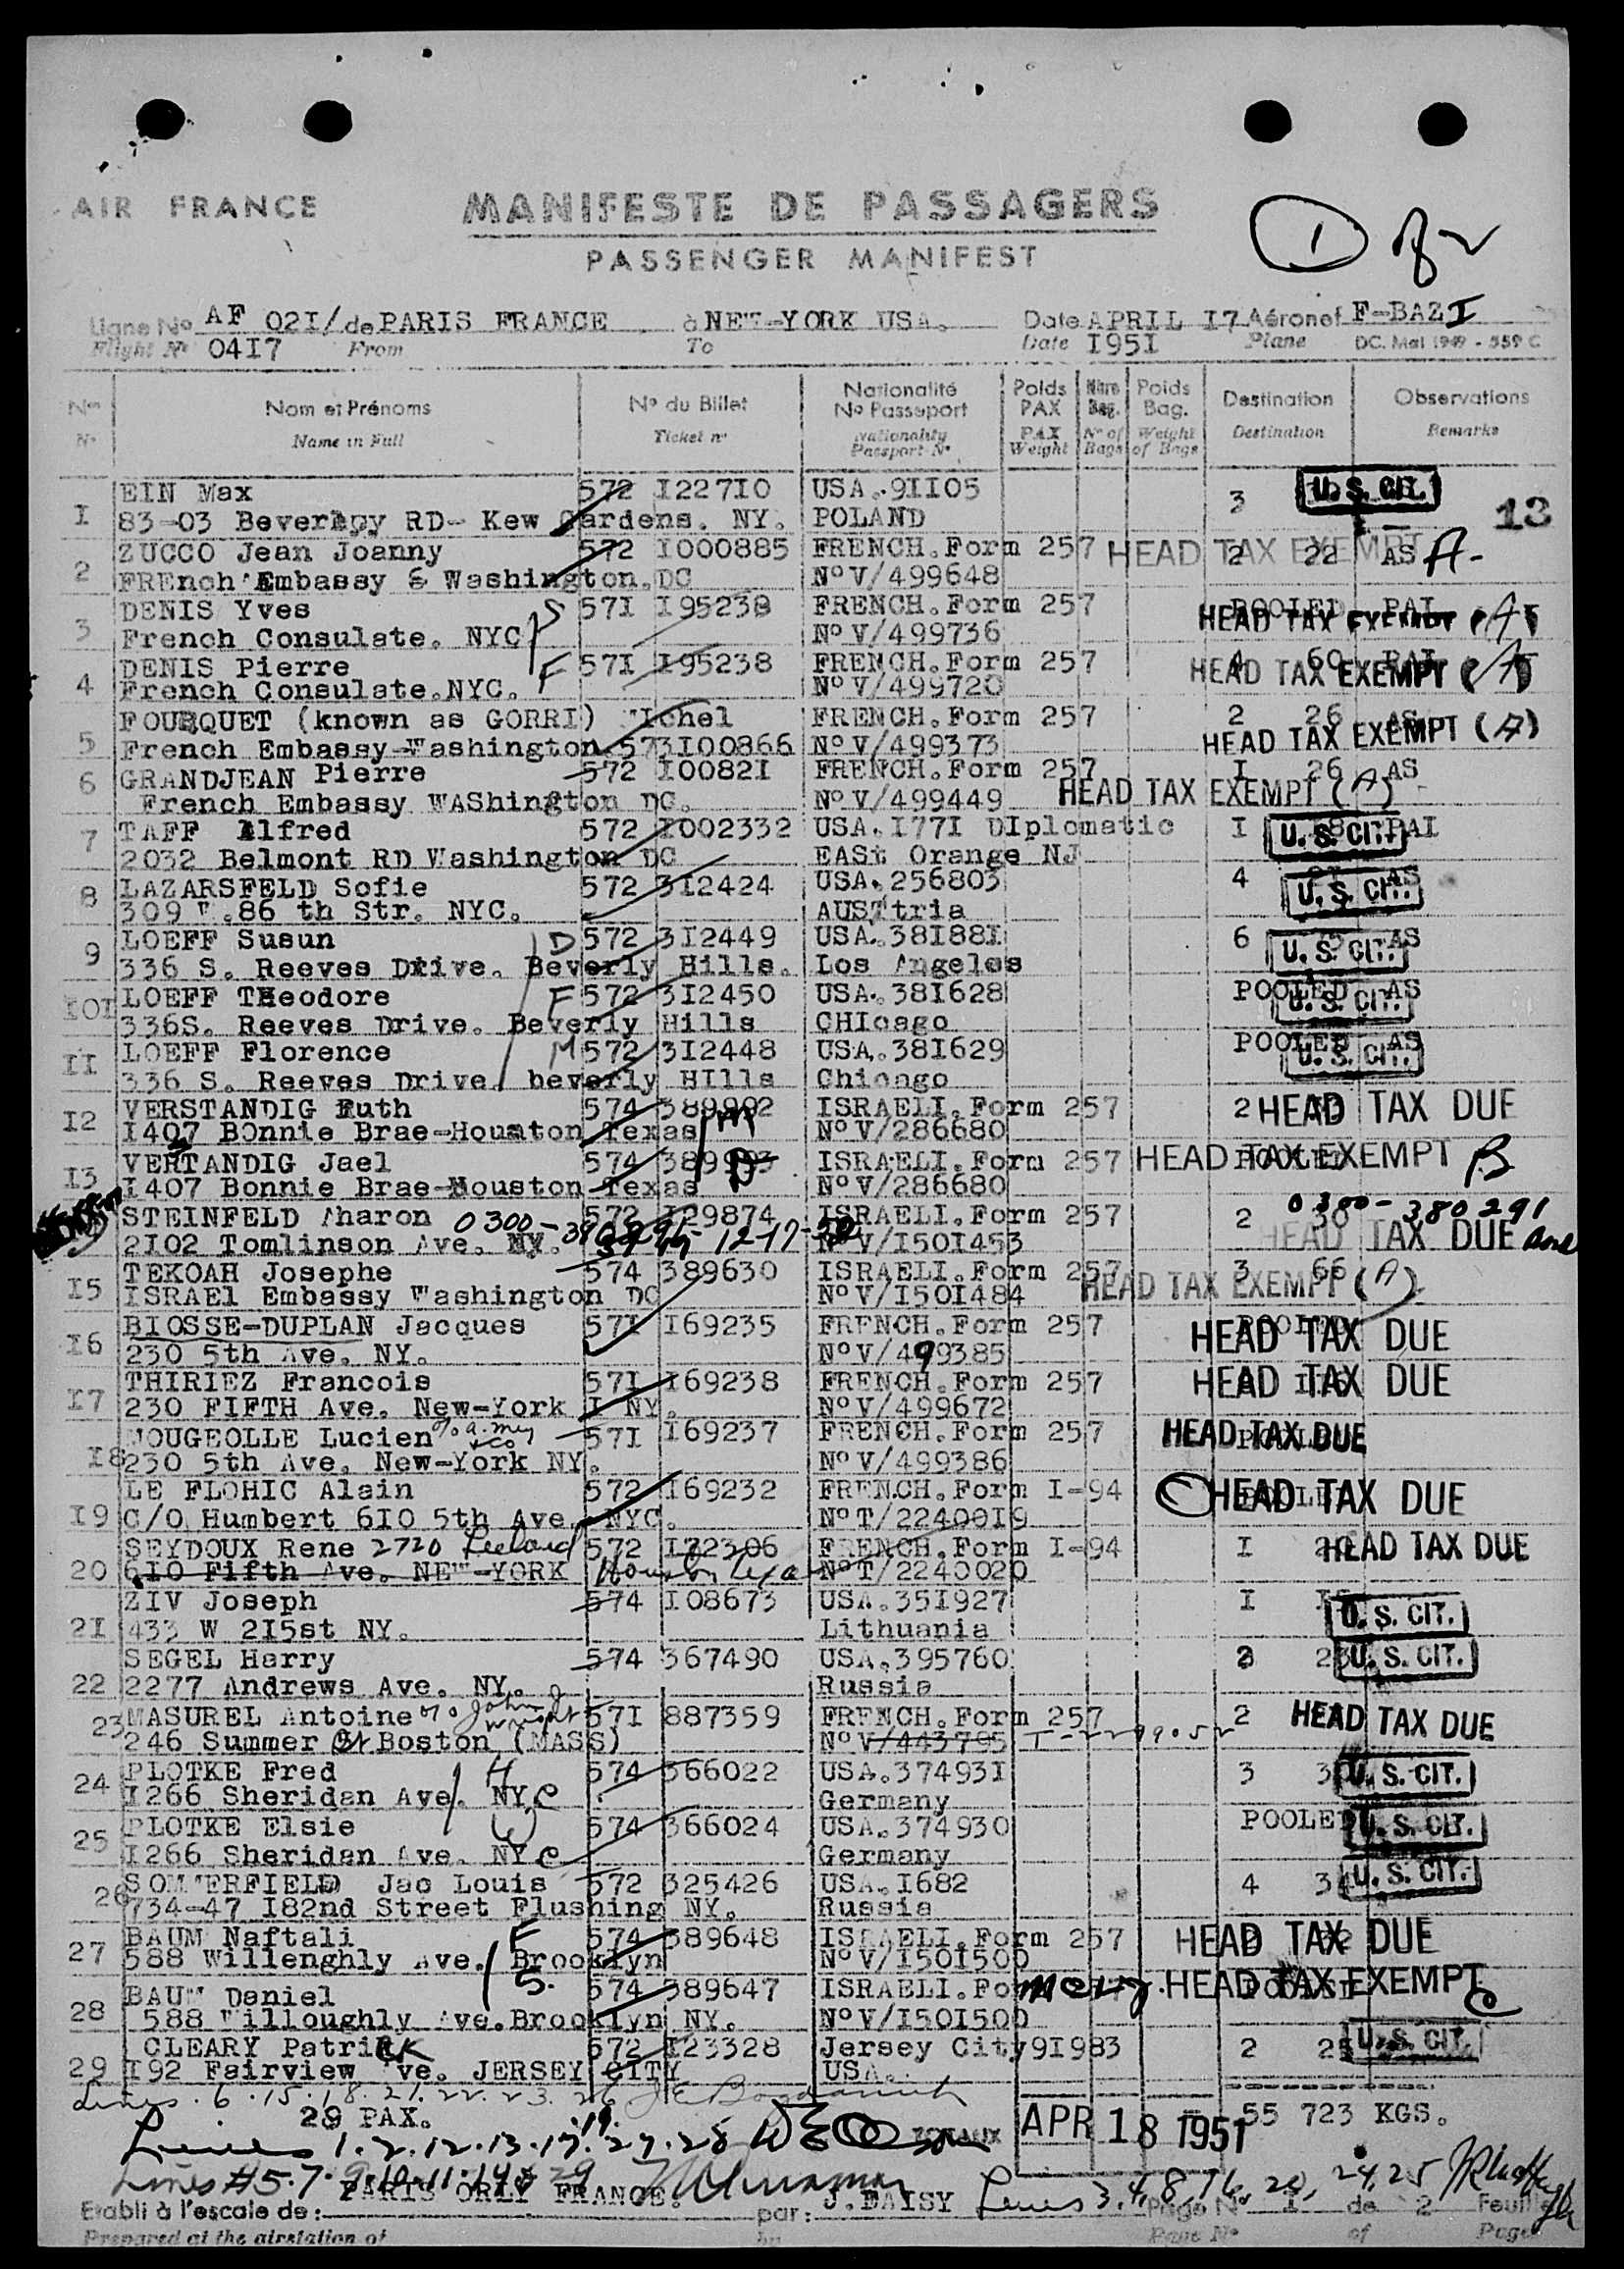 AIR FRANCE
MANIFESTE DE PASSAGERS
PASSENGER MANIFEST
1 of 2
Ligne No AF 02I/ de PARIS FRANCE à NEW-YORK USA. Date APRIL I7 Aéronef F-BAZI
Flight No 04I7 From To Date I95I Plane DC. Mai 1949 - 559 C
Nos Nom et Prénoms No du Billet Nationalité No Passeport Poids PAX Nbre Bag. Poids Bag. Destination Observations
No Name in Full Ticket no Nationality Passport No PAX Weight No of Bags Weight of Bags Destination Remarks
EIN Max 572 I227I0 USA.9II05 3 U.S. CIT.
I 83-03 Beverlpy RD- Kew Gardens. NY. POLAND 13
ZUCCO Jean Joanny 572 I000885 FRENCH.Form 257 HEAD TAX EXEMPT 2 22 AS A-
2 FREnch Embassy & Washington.DC No V/499648
DENIS Yves S 57I I95238 FRENCH.Form 257 POOLED PAI HEAD TAX EXEMPT (A)
3 French Consulate. NYC No V/499736
DENIS Pierre F 57I I95238 FRENCH.Form 257 4 60 PAI HEAD TAX EXEMPT (A)
4 French Consulate.NYC. No V/499720
FOURQUET (known as GORRI) Michel FRENCH.Form 257 2 26 AS
5 French Embassy-Washington 573I00866 No V/499373 HEAD TAX EXEMPT (A)
6 GRANDJEAN Pierre 572 I0082I FRENCH.Form 257 I 26 AS
French Embassy WAShington DC. No V/499449 HEAD TAX EXEMPT (A)
7 TAFF Alfred 572 I002332 USA.I77I DIplomatic I U.S. CIT. PAI
2032 Belmont RD Washington DC EASt Orange NJ
8 LAZARSFELD Sofie 572 3I2424 USA.256803 4 AS U.S. CIT.
309 W.86 th Str. NYC. AUSTtria
LOEFF Susun D 572 3I2449 USA.38I88I 6 AS U.S. CIT.
9 336 S. Reeves Drive. Beverly Hills. Los Angeles
I0I LOEFF THeodore F 572 3I2450 USA.38I628 POOLED AS U.S. CIT.
336S. Reeves Drive. Beverly Hills CHIcago
II LOEFF Florence M 572 3I2448 USA.38I629 POOLED AS U.S. CIT.
336 S. Reeves Drive. beverly HIlls Chicago
I2 VERSTANDIG Ruth 574 389992 ISRAELI.Form 257 2 HEAD TAX DUE
I407 BOnnie Brae-Houston Texas M No V/286680
VERTANDIG Jael 574 389993 ISRAELI.Form 257 POOLED HEAD TAX EXEMPT B
I3 I407 Bonnie Brae-Houston Texas D No V/286680
STEINFELD Aharon 572 I29874 ISRAELI.Form 257 2 30 0300-380291
2I02 Tomlinson Ave. NY. 0300- 12-17-50 No V/I50I453 HEAD TAX DUE
TEKOAH Josephe 574 389630 ISRAELI.Form 257 3 66
I5 ISRAEl Embassy Washington DC No V/I50I484 HEAD TAX EXEMPT (A)
BIOSSE-DUPLAN Jacques 57I I69235 FRENCH.Form 257 POOLED HEAD TAX DUE
I6 230 5th Ave. NY. No V/499385
THIRIEZ Francois 57I I69238 FRENCH.Form 257 HEAD TAX DUE
I7 230 FIFTH Ave. New-York I NY. No V/499672
NOUGEOLLE Lucien 57I I69237 FRENCH.Form 257 HEAD TAX DUE
I8 230 5th Ave. New-York NY. No V/499386
LE FLOHIC Alain 572 I69232 FRENCH.Form I-94 HEAD TAX DUE
I9 C/O Humbert 6I0 5th Ave. NYC. No T/22400I9
SEYDOUX Rene 2720 572 I72306 FRENCH.Form I-94 I HEAD TAX DUE
20 6I0 Fifth Ave. NEW-YORK Houston Texas No T/2240020
ZIV Joseph 574 I08673 USA.35I927 I U.S. CIT.
2I 433 W 2I5st NY. Lithuania
SEGEL Harry 574 367490 USA.395760 2 23 U.S. CIT.
22 2277 Andrews Ave. NY. Russia
23 MASUREL Antoine c/o John Wright 57I 887359 FRENCH.Form 257 2 HEAD TAX DUE
246 Summer St Boston (MASS) No V/443795
24 PLOTKE Fred H 574 366022 USA.37493I 3 U.S. CIT.
I266 Sheridan Ave. NYC Germany
25 PLOTKE Elsie W 574 366024 USA.374930 POOLED U.S. CIT.
I266 Sheridan Ave. NYC Germany
26 SOMMERFIELD Jac Louis 572 325426 USA.I682 4 U.S. CIT.
734-47 I82nd Street Flushing NY. Russia
BAUM Naftali F 574 389648 ISRAELI.Form 257 HEAD TAX DUE
27 588 Willenghly Ave. Brooklyn No V/I50I500
BAUM Daniel S. 574 389647 ISRAELI.Form HEAD TAX EXEMPT C
28 588 Willoughly Ave.Brooklyn NY. No V/I50I500
CLEARY Patrick 572 I23328 Jersey City9I983 2 U.S. CIT.
29 I92 Fairview Ave. JERSEY CITY USA.
Lines. 6.15.18.21.22.23.26
29 PAX. TOTAUX APR 18 1951 55 723 KGS.
Lines 1.2.12.13.17.19.27.28
Lines #5.7.9.10.11.14 & 29 Lines 3,4,8,16,20,24,25
Etabli à l'escale de: PARIS ORLY FRANCE. par: J.DAISY Page No I de 2 Feuille
Prepared at the airstation of by Page No of Pages